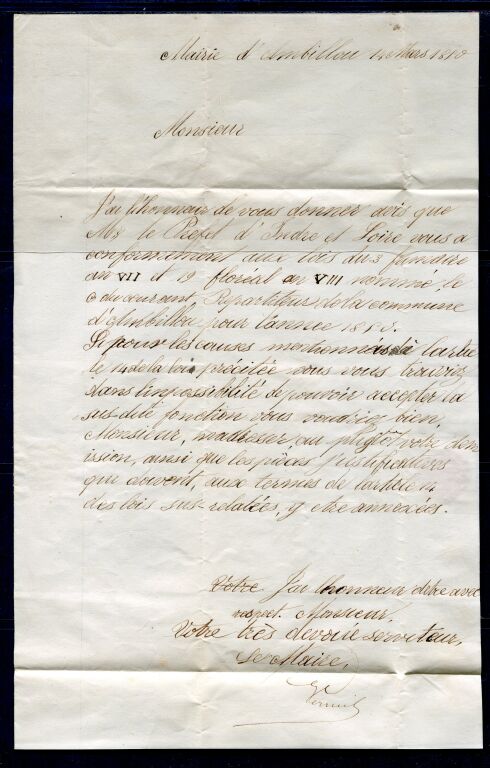 Mairie d'Ambillou 14 Mars 1810
Monsieur
J'ai l'honneur de vous donner avis que
Mr le Préfet d'Indre et Loire vous a
conformément aux lois du 3 frimaire
an VII et 19 floréal an VIII nommé le
6 du courant, Répartiteur de la commune
d'Ambillou pour l'année 1810.
Si pour les causes mentionnées à l'article
le 14 de la loi précitée vous vous trouviez
dans l'impossibilité de pouvoir accepter la
sus-dite fonction vous voudriez bien
Monsieur, m'adresser au plutôt votre dém
ission, ainsi que les pièces justificatives
qui doivent, aux termes de l'article 14
des lois sus-relatées, y etre annexées.
Votre J'ai l'honneur d'etre avec
respect. Monsieur,
Votre très dévoué serviteur,
Le Maire,